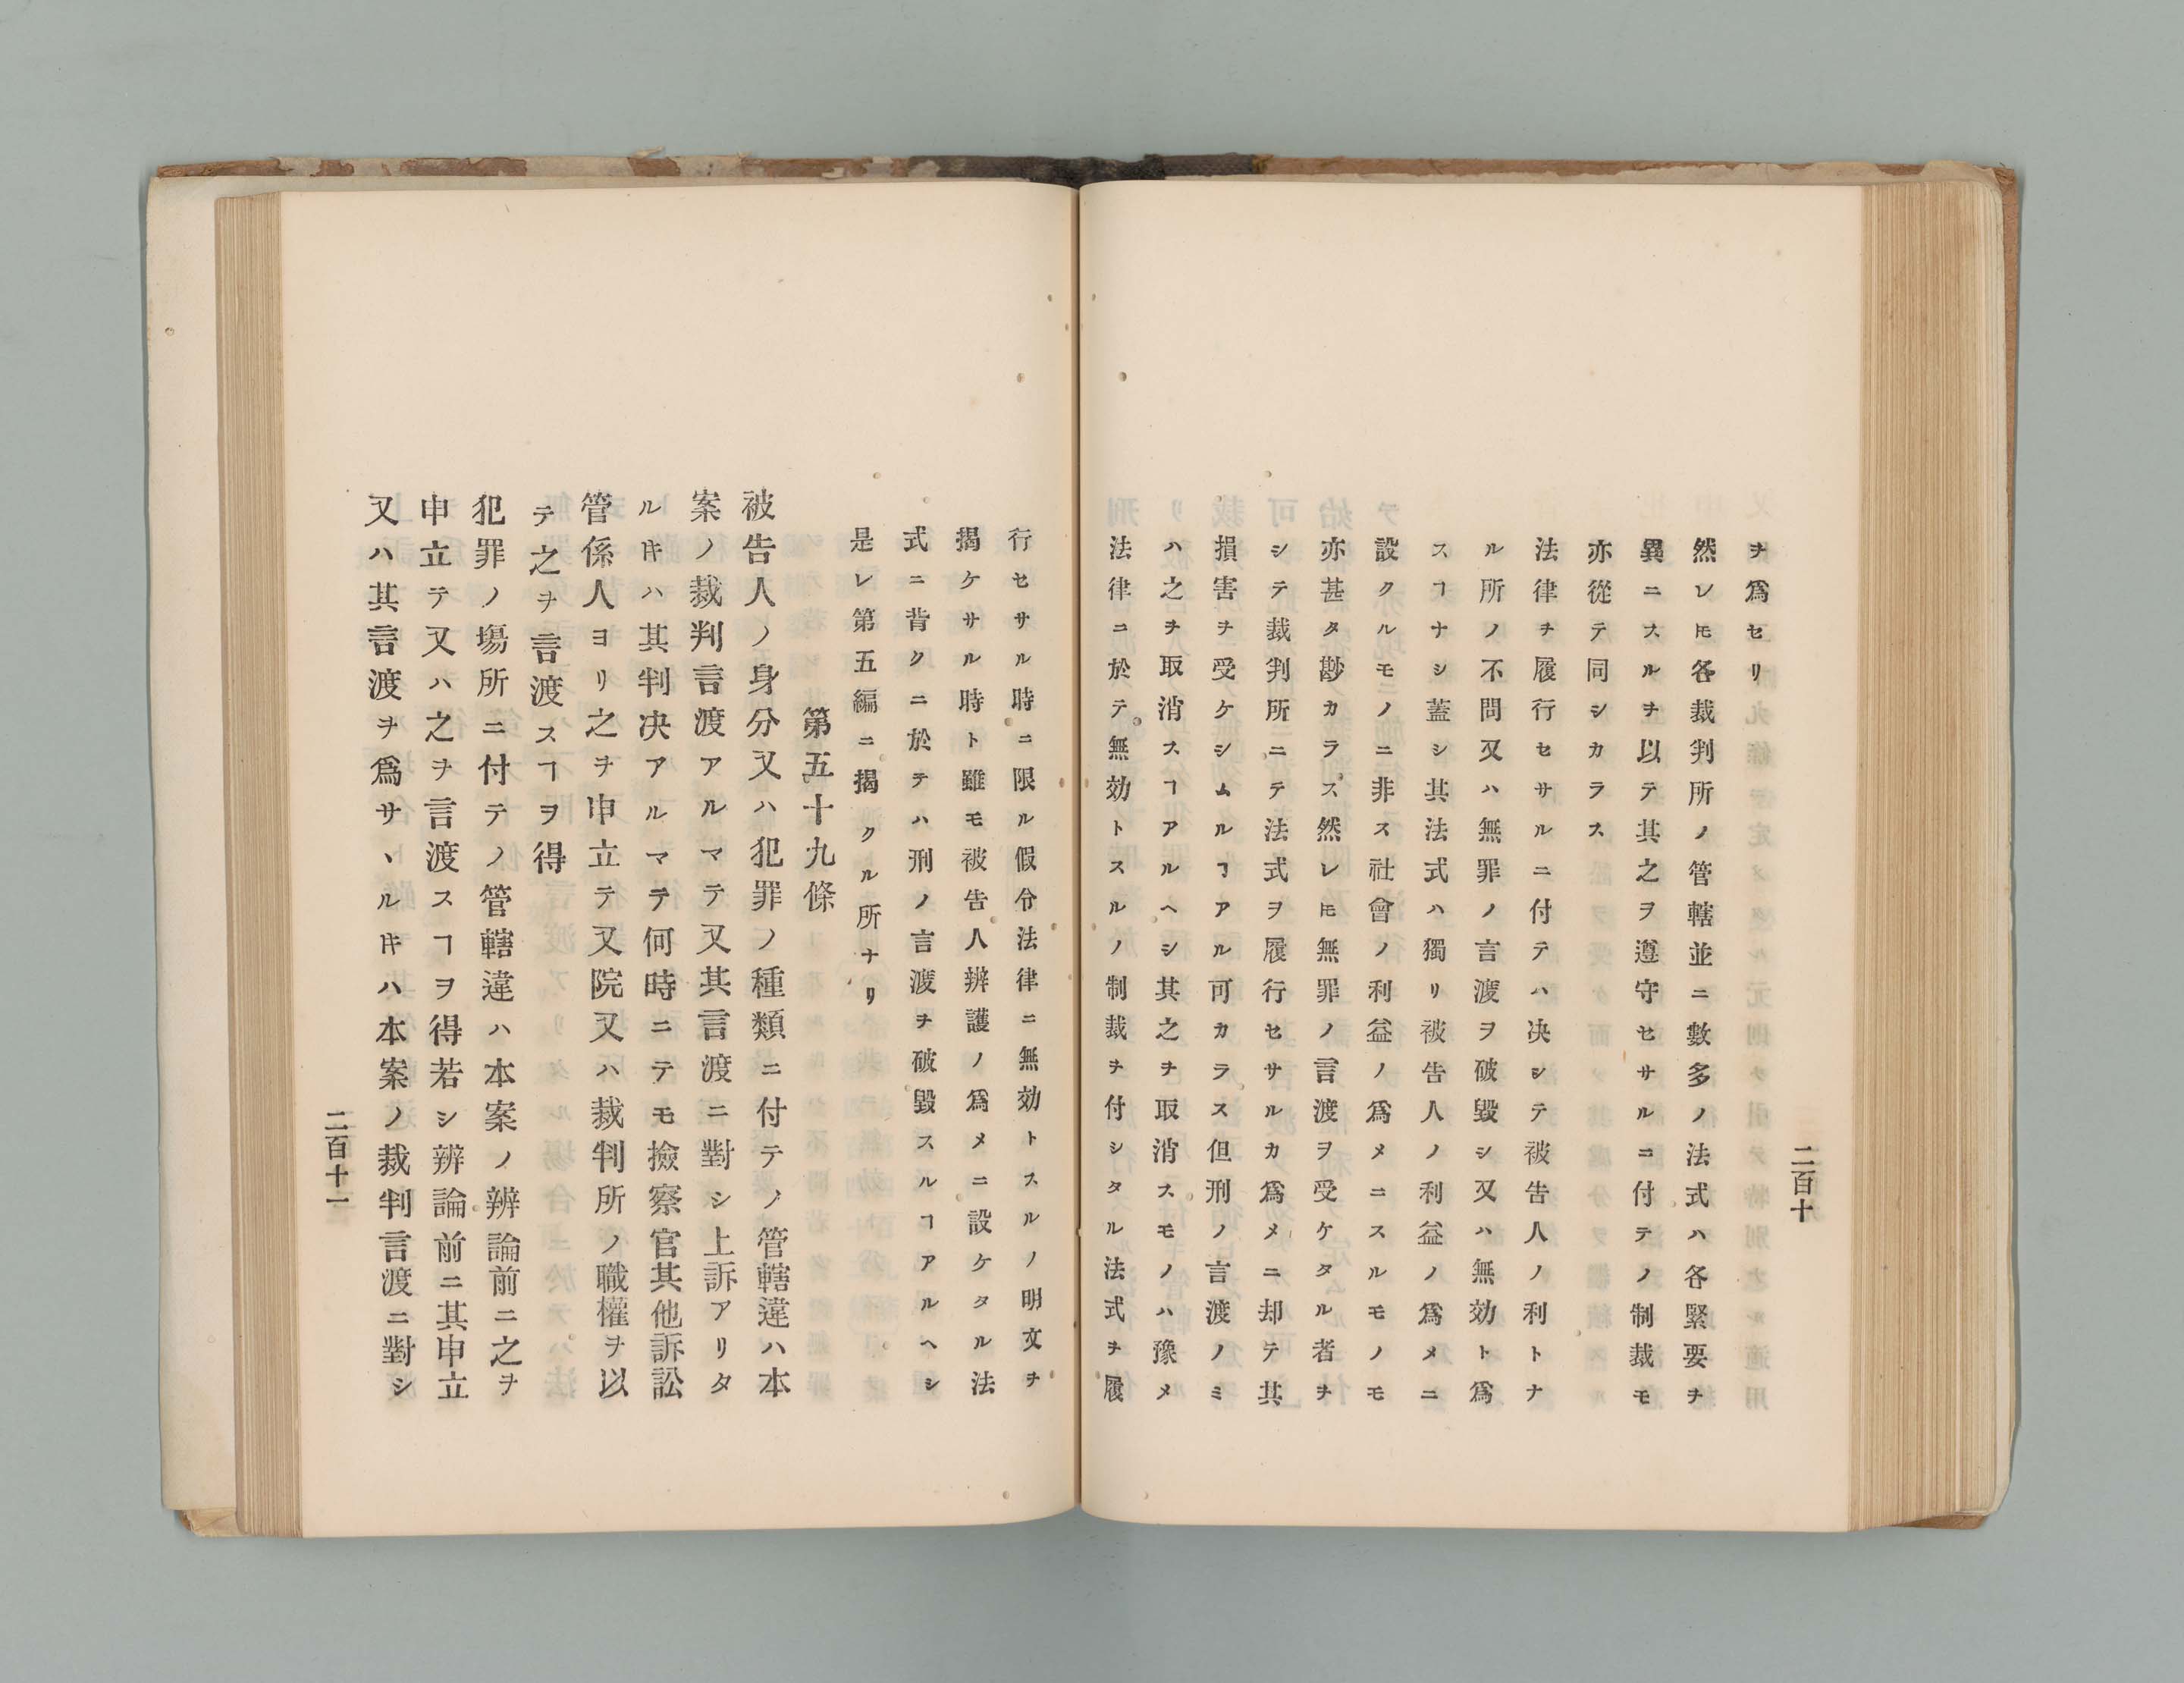 二百十
ヲ爲セリ
然レ𪜈各裁判所ノ管轄並ニ數多ノ法式ハ各緊要ヲ
異ニスルヲ以テ其之ヲ遵守セサルニ付テノ制裁モ
亦從テ同シカラス
法律ヲ履行セサルニ付テハ决シテ被告人ノ利トナ
ル所ノ不問又ハ無罪ノ言渡ヲ破毀シ又ハ無効ト爲
スヿナシ蓋シ其法式ハ獨リ被告人ノ利益ノ爲メニ
設クルモノニ非ス社會ノ利益ノ爲メニスルモノモ
亦甚タ尠カラス然レ𪜈無罪ノ言渡ヲ受ケタル者ヲ
シテ裁判所ニテ法式ヲ履行セサルカ爲メニ却テ其
損害ヲ受ケシムルヿアル可カラス但刑ノ言渡ノミ
ハ之ヲ取消スヿアルヘシ其之ヲ取消スモノハ豫メ
法律ニ於テ無効トスルノ制裁ヲ付シタル法式ヲ履
行セサル時ニ限ル假令法律ニ無効トスルノ明文ヲ
揭ケサル時ト雖モ被告人辨護ノ爲メニ設ケタル法
式ニ背クニ於テハ刑ノ言渡ヲ破毀スルヿアルヘシ
是レ第五編ニ揭クル所ナリ
第五十九條
被告人ノ身分又ハ犯罪ノ種類ニ付テノ管轄違ハ本
案ノ裁判言渡アルマテ又其言渡ニ對シ上訴アリタ
ル𪜈ハ其判决アルマテ何時ニテモ撿察官其他訴訟
管係人ヨリ之ヲ申立テ又院又ハ裁判所ノ職權ヲ以
テ之ヲ言渡スヿヲ得
犯罪ノ塲所ニ付テノ管轄違ハ本案ノ辨論前ニ之ヲ
申立テ又ハ之ヲ言渡スヿヲ得若シ辨論前ニ其申立
又ハ其言渡ヲ爲サヽル𪜈ハ本案ノ裁判言渡ニ對シ
二百十一